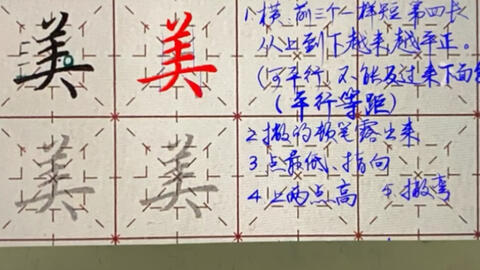 美 美
美 美
1 横 前三个一样短 第四长
从上到下越来越平正。
(可平行,不能反过来下面
(平行等距)
2 撇的顿笔露出来
3 点最低、指向
4 上两点高 5 撇弯